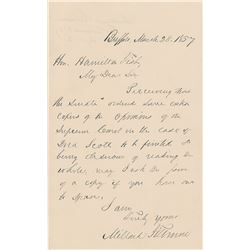 Buffalo, March 28. 1857
Hon. Hamilton Fish
My Dear Sir
Perceiving that
the Senate ordered some extra
copies of the Opinions of the
Supreme Court in the case of
Dred Scott to be printed &
being desirous of reading the
whole may I ask the favor
of a copy if you have one
to spare.
I am
Truly yours
Millard Fillmore